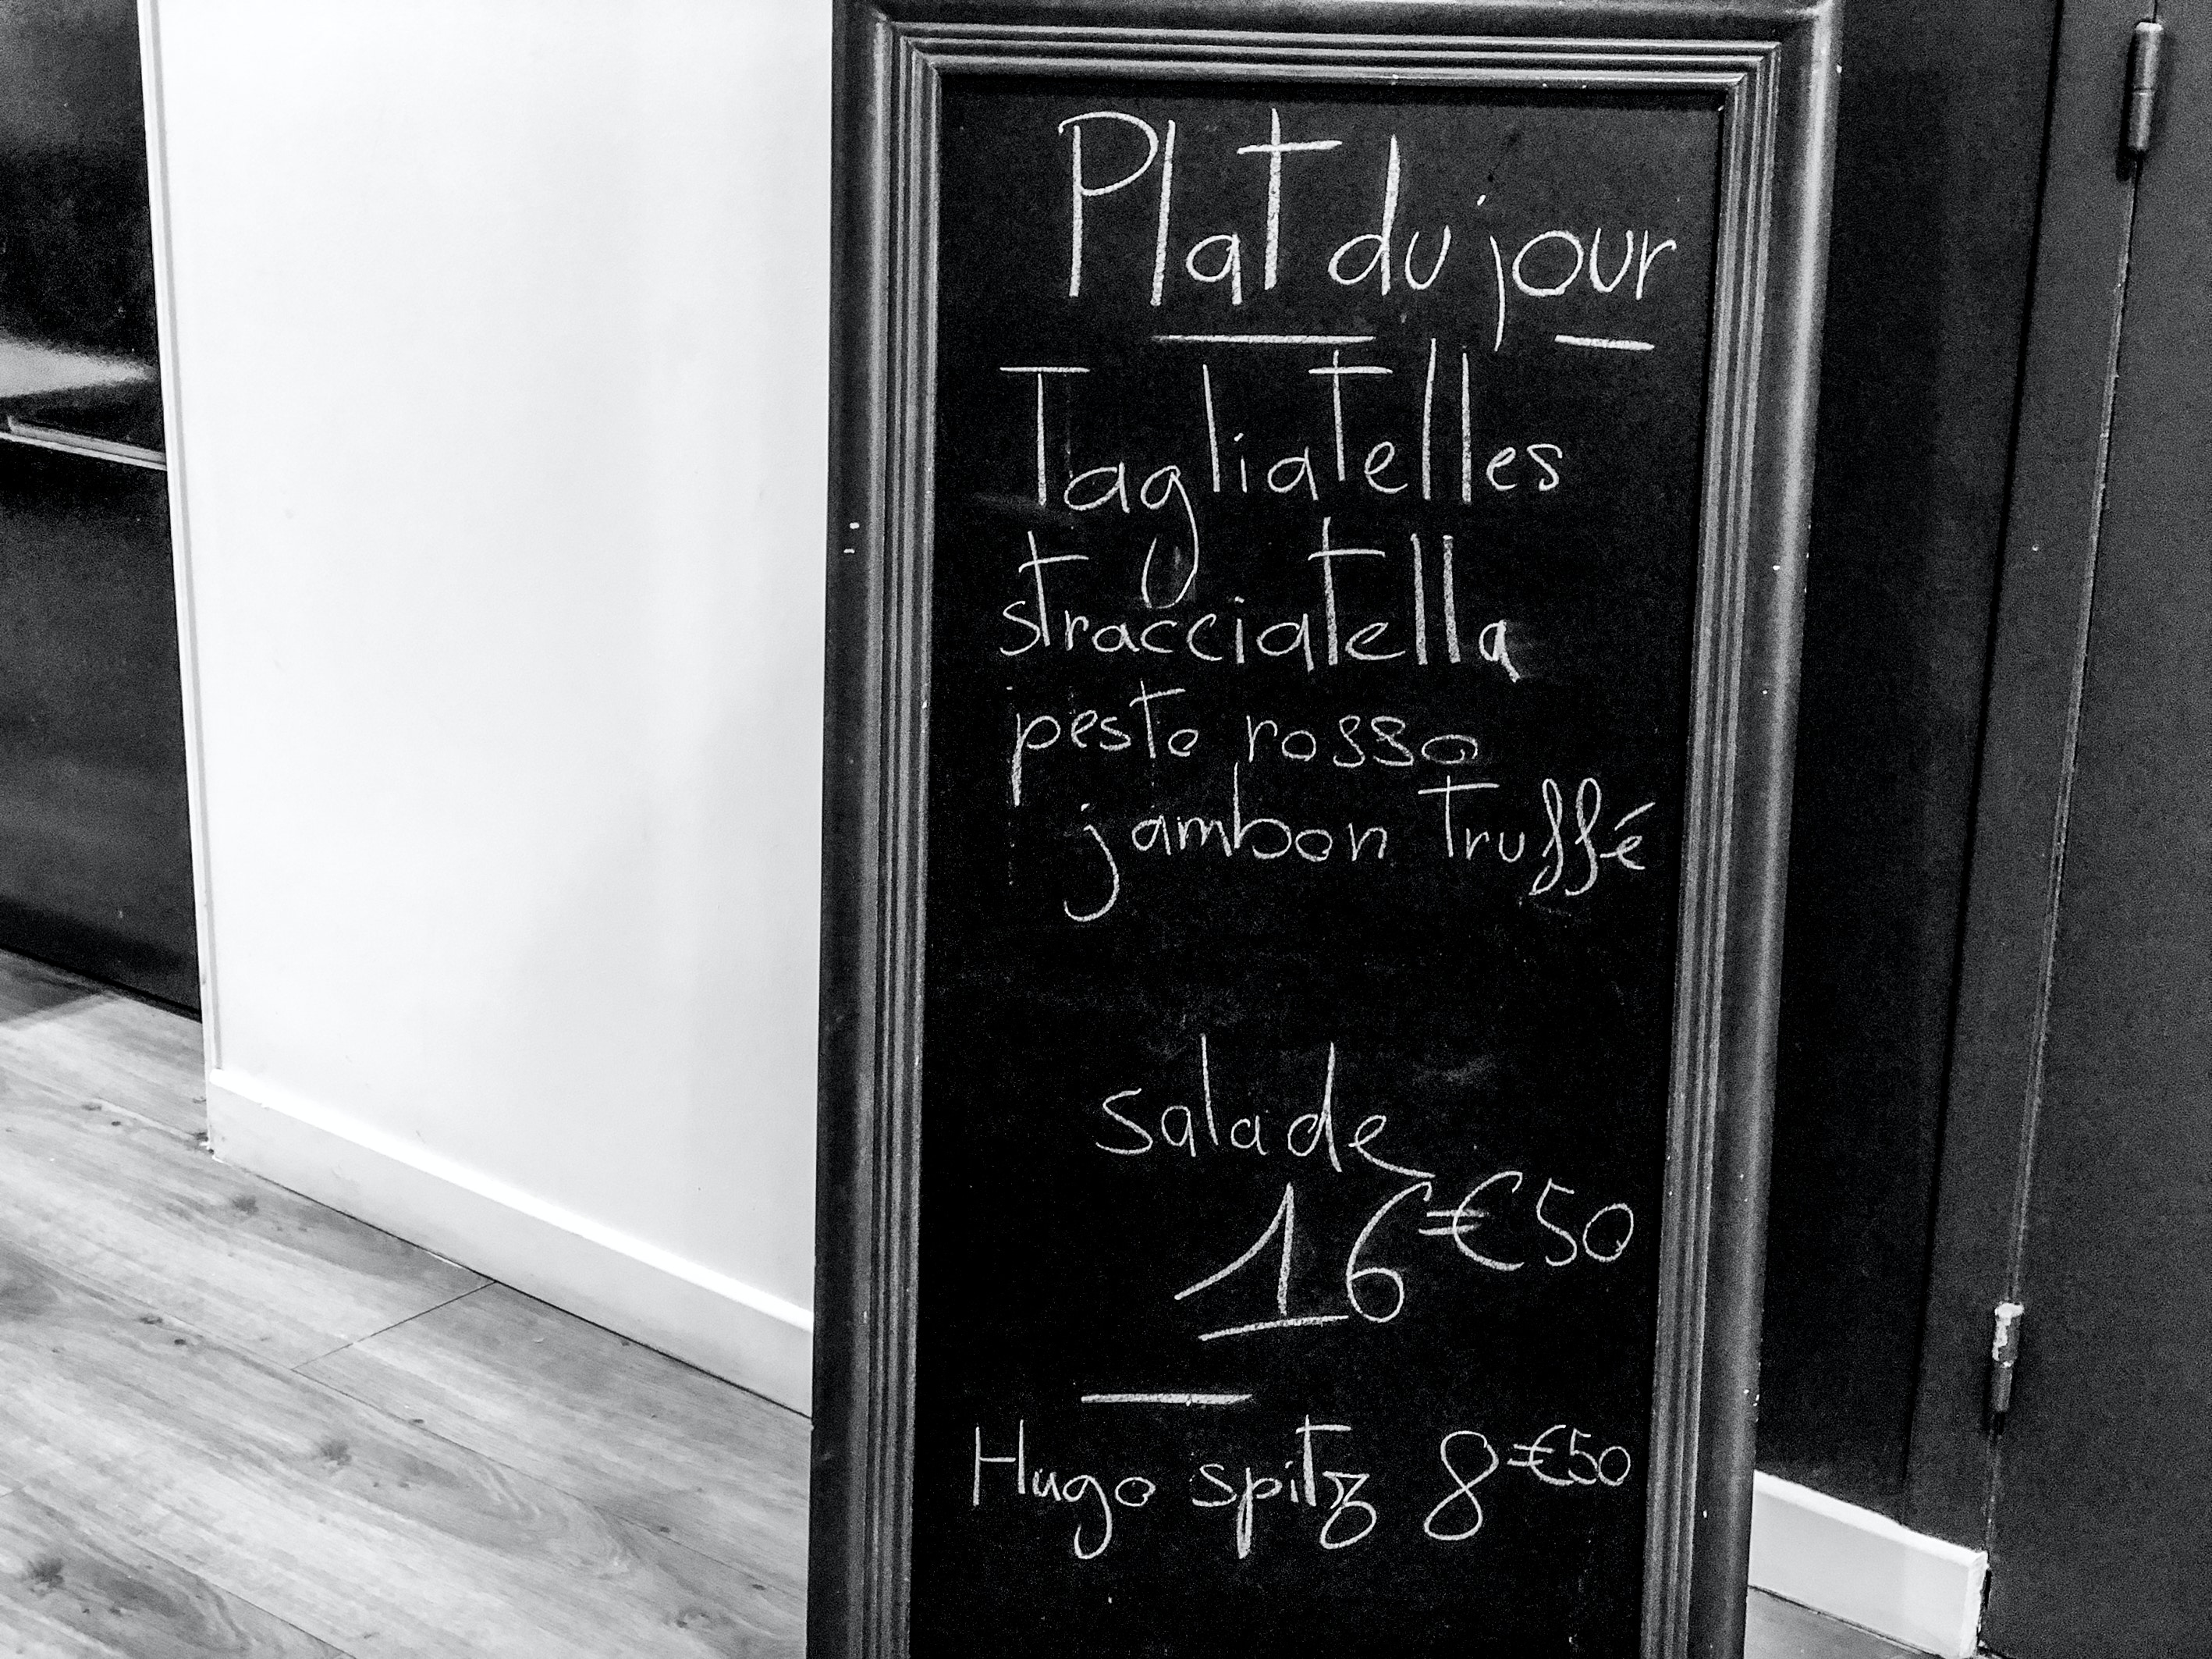 Plat du jour
Tagliatelles
stracciatella
pesto rosso
jambon truffé
salade
16€50
Hugo spitz 8€50